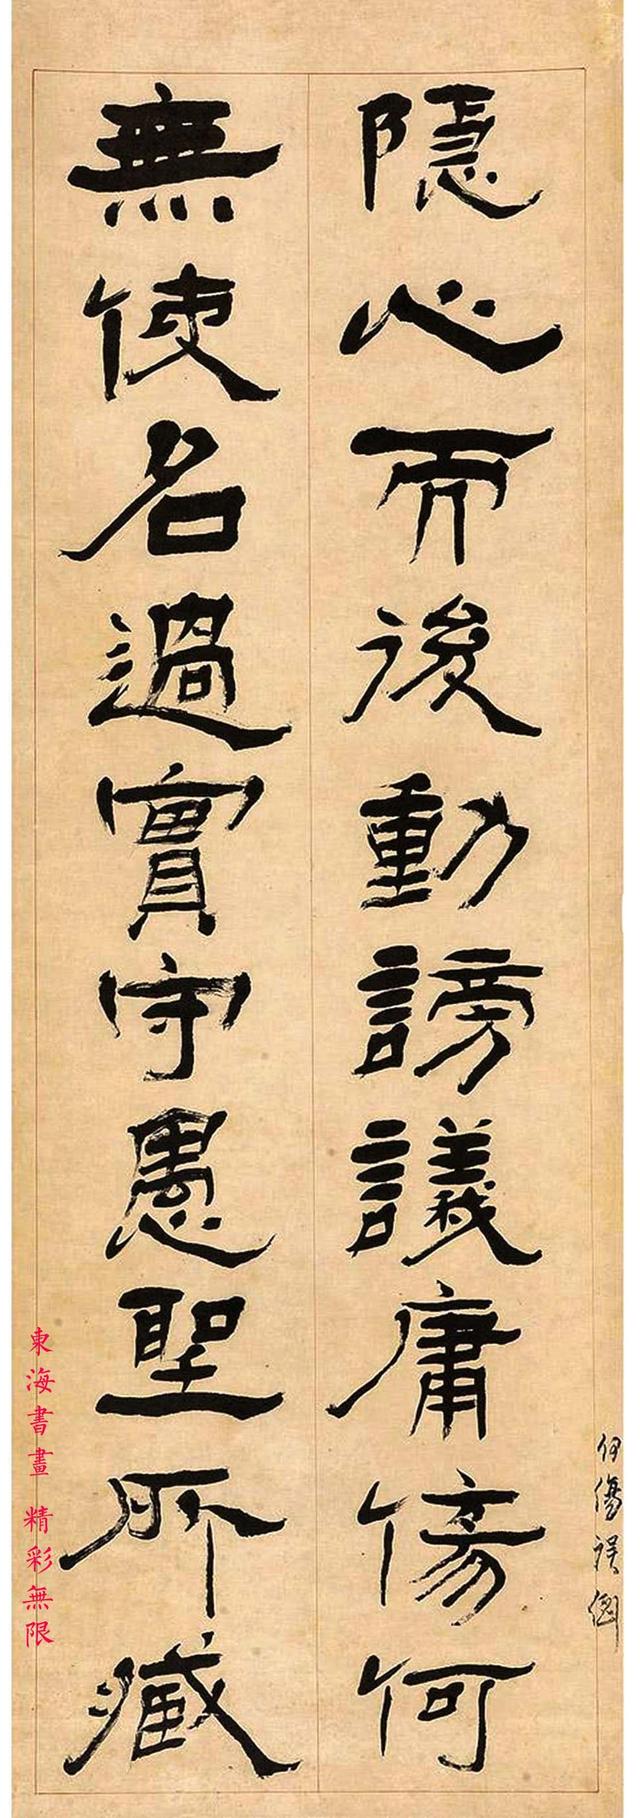 隱心而後動謗議庸傷何
何傷誤倒
無使名過實守愚聖所臧
東海書畫 精彩無限